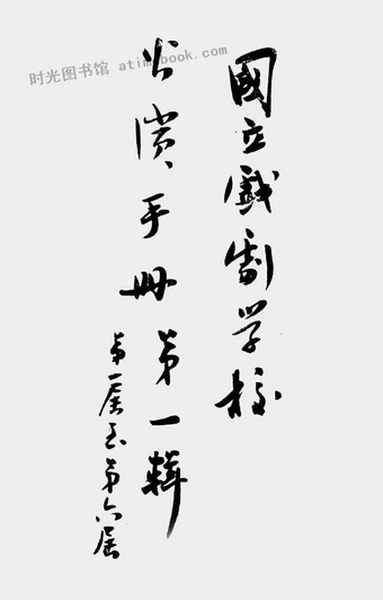 时光图书馆 atimebook.com
國立戲劇学校
公演手冊第一輯
第一届至第六届